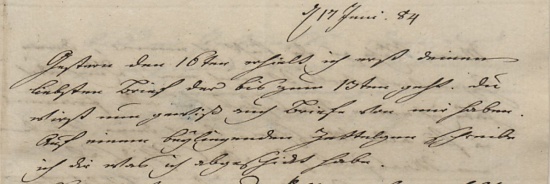 d 17 Juni. 84
Gestern den 16ten erhielt ich erst deinen
liebsten Brief der bis zum 13ten geht. Du
wirst nun gewiß auch Briefe von mir haben.
Auf einem beyliegenden Zettelgen schreibe
ich dir was ich abgeschickt habe.